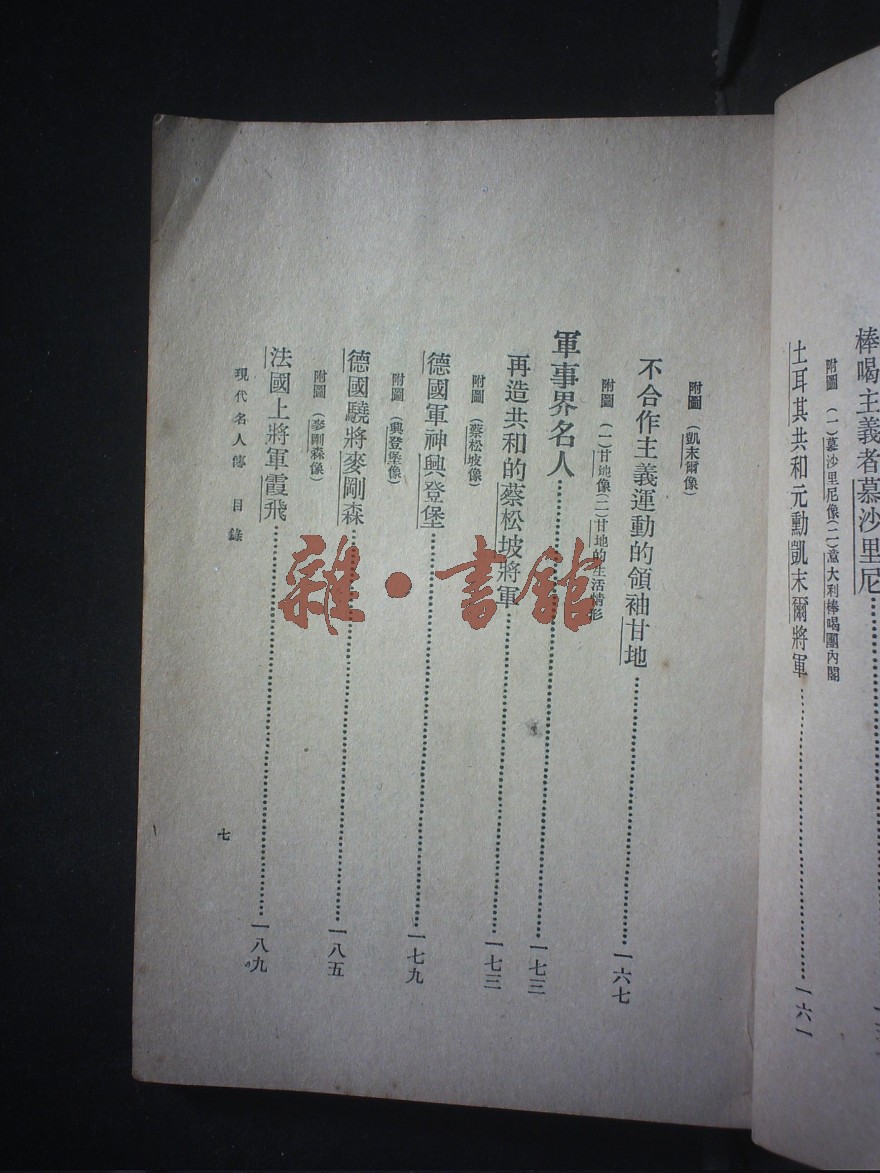 棒喝主義者慕沙里尼
附圖 (一)慕沙里尼像(二)意大利棒喝團內閣
土耳其共和元勳凱末爾將軍 一六一
附圖 (凱末爾像)
不合作主義運動的領袖甘地 一六七
附圖 (一)甘地像(二)甘地的生活情形
軍事界名人 一七三
再造共和的蔡松坡將軍 一七三
附圖 (蔡松坡像)
德國軍神興登堡 一七九
附圖 (興登堡像)
德國驍將麥剛森 一八五
附圖 (麥剛森像)
法國上將軍霞飛 一八九
現代名人傳 目錄 七
雜·書館